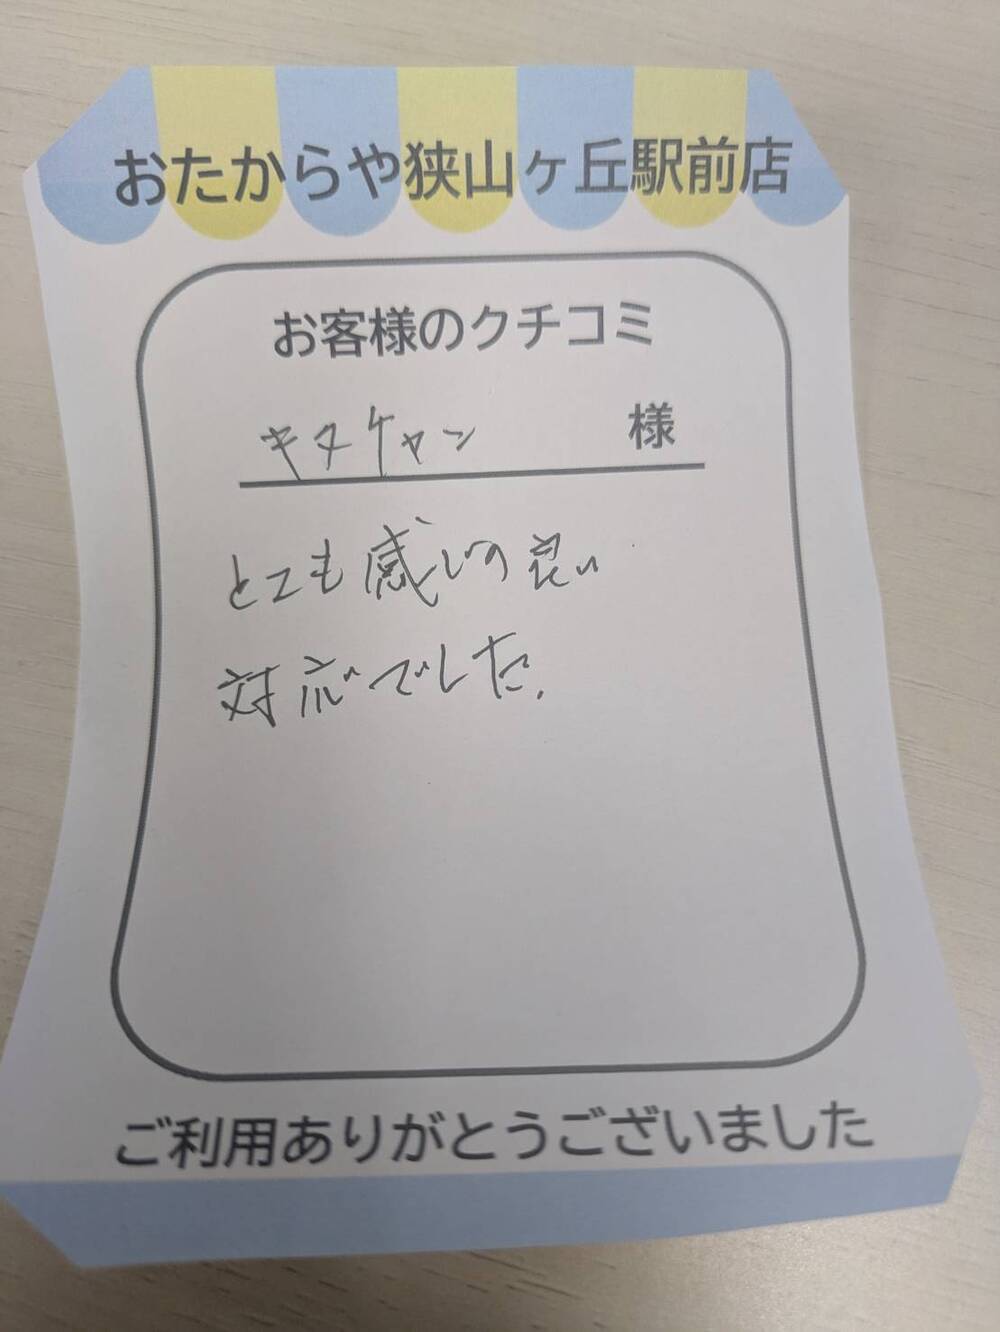 おたからや狭山ヶ丘駅前店
お客様のクチコミ
キヌケャン 様
とても感じの良い
対応でした.
ご利用ありがとうございました